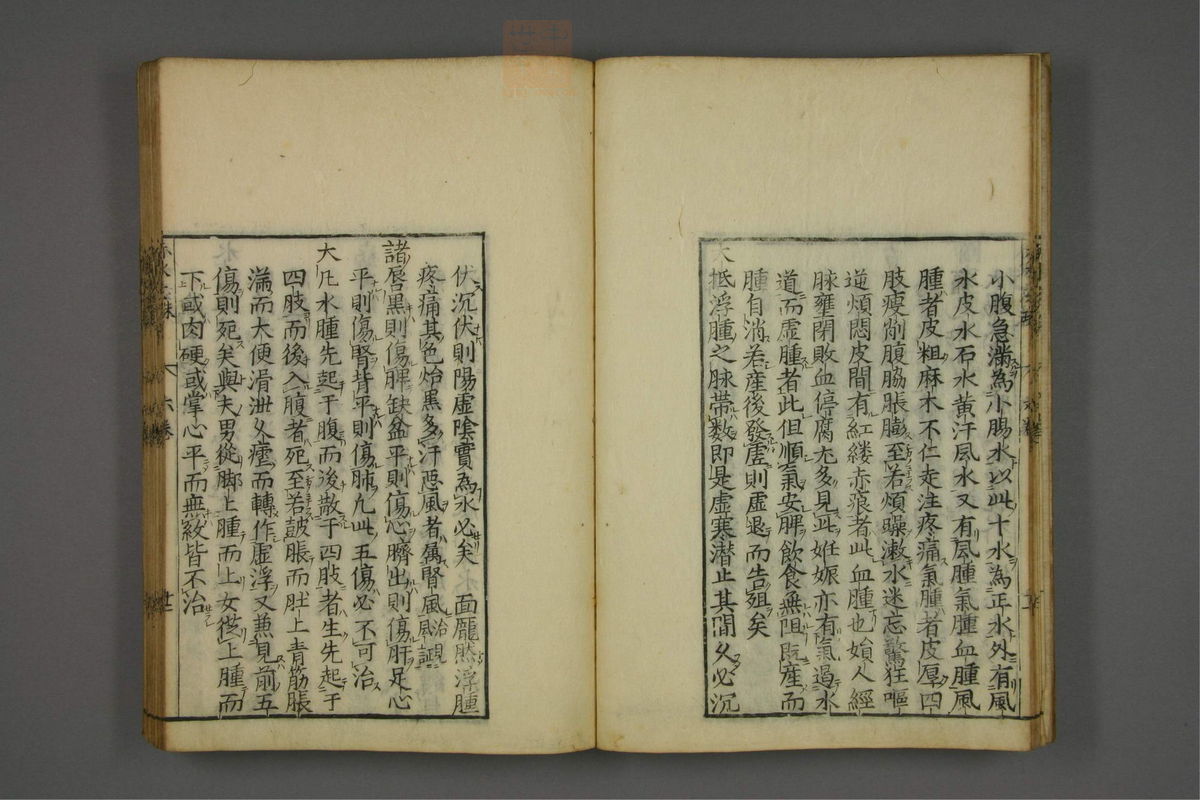 小腹急滿為小腸水以此十水為正水外有風
水皮水石水黃汗風水又有風腫氣腫血腫風
腫者皮粗麻木不仁走注疼痛氣腫者皮厚四
肢瘦削腹脇脹膨至若煩躁漱水迷忘驚狂嘔
逆煩悶皮間有紅縷赤痕者此血腫也婦人經
脉壅閉敗血停腐尤多見此妊娠亦有氣過水
道而虛腫者此但順氣安脾飲食無阻既產而
腫自消若產後發虛則虛退而告殂矣
大抵浮腫之脉帶數即是虛寒潛止其間久必沉
伏沉伏則陽虛陰實為水必矣 面龐然浮腫
疼痛其色炲黑多汗惡風者属腎風治風謂
諸唇黑則傷脾缺盆平則傷心臍出則傷肝足心
平則傷腎背平則傷肺凡此五傷必不可治
大凡水腫先起于腹而後散于四肢者生先起于
四肢而後入腹者死至若皷脹而肚上青筋脹
滿而大便滑泄久瘧而轉作虛浮又兼見前五
傷則死矣與夫男從脚上腫而上女從上腫而
下或肉硬或掌心平而無紋皆不治
六卷